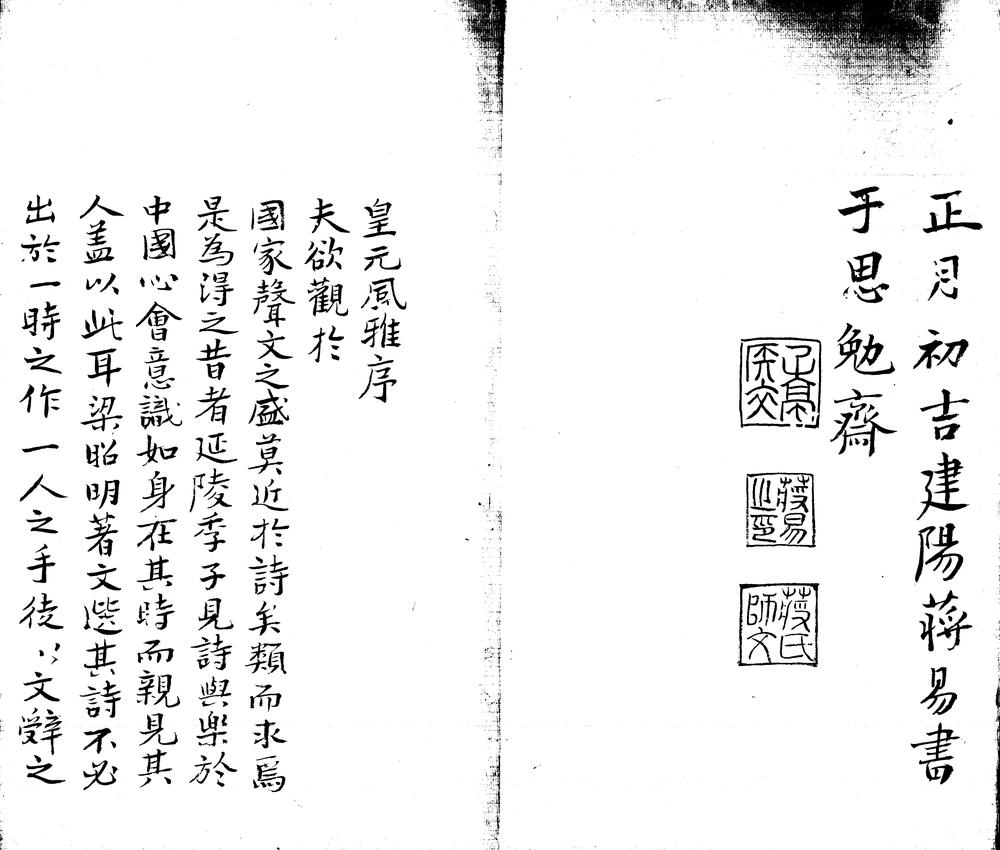 正月初吉建陽蔣易書
于思勉齋
蔣易
之印
蔣氏
師文
皇元風雅序
夫欲觀於
國家聲文之盛莫近於詩矣類而求焉
是為淂之昔者延陵季子見詩與樂於
中國心會意識如身在其時而親見其
人盖以此耳梁昭明著文選其詩不必
出於一時之作一人之手徒以文辭之